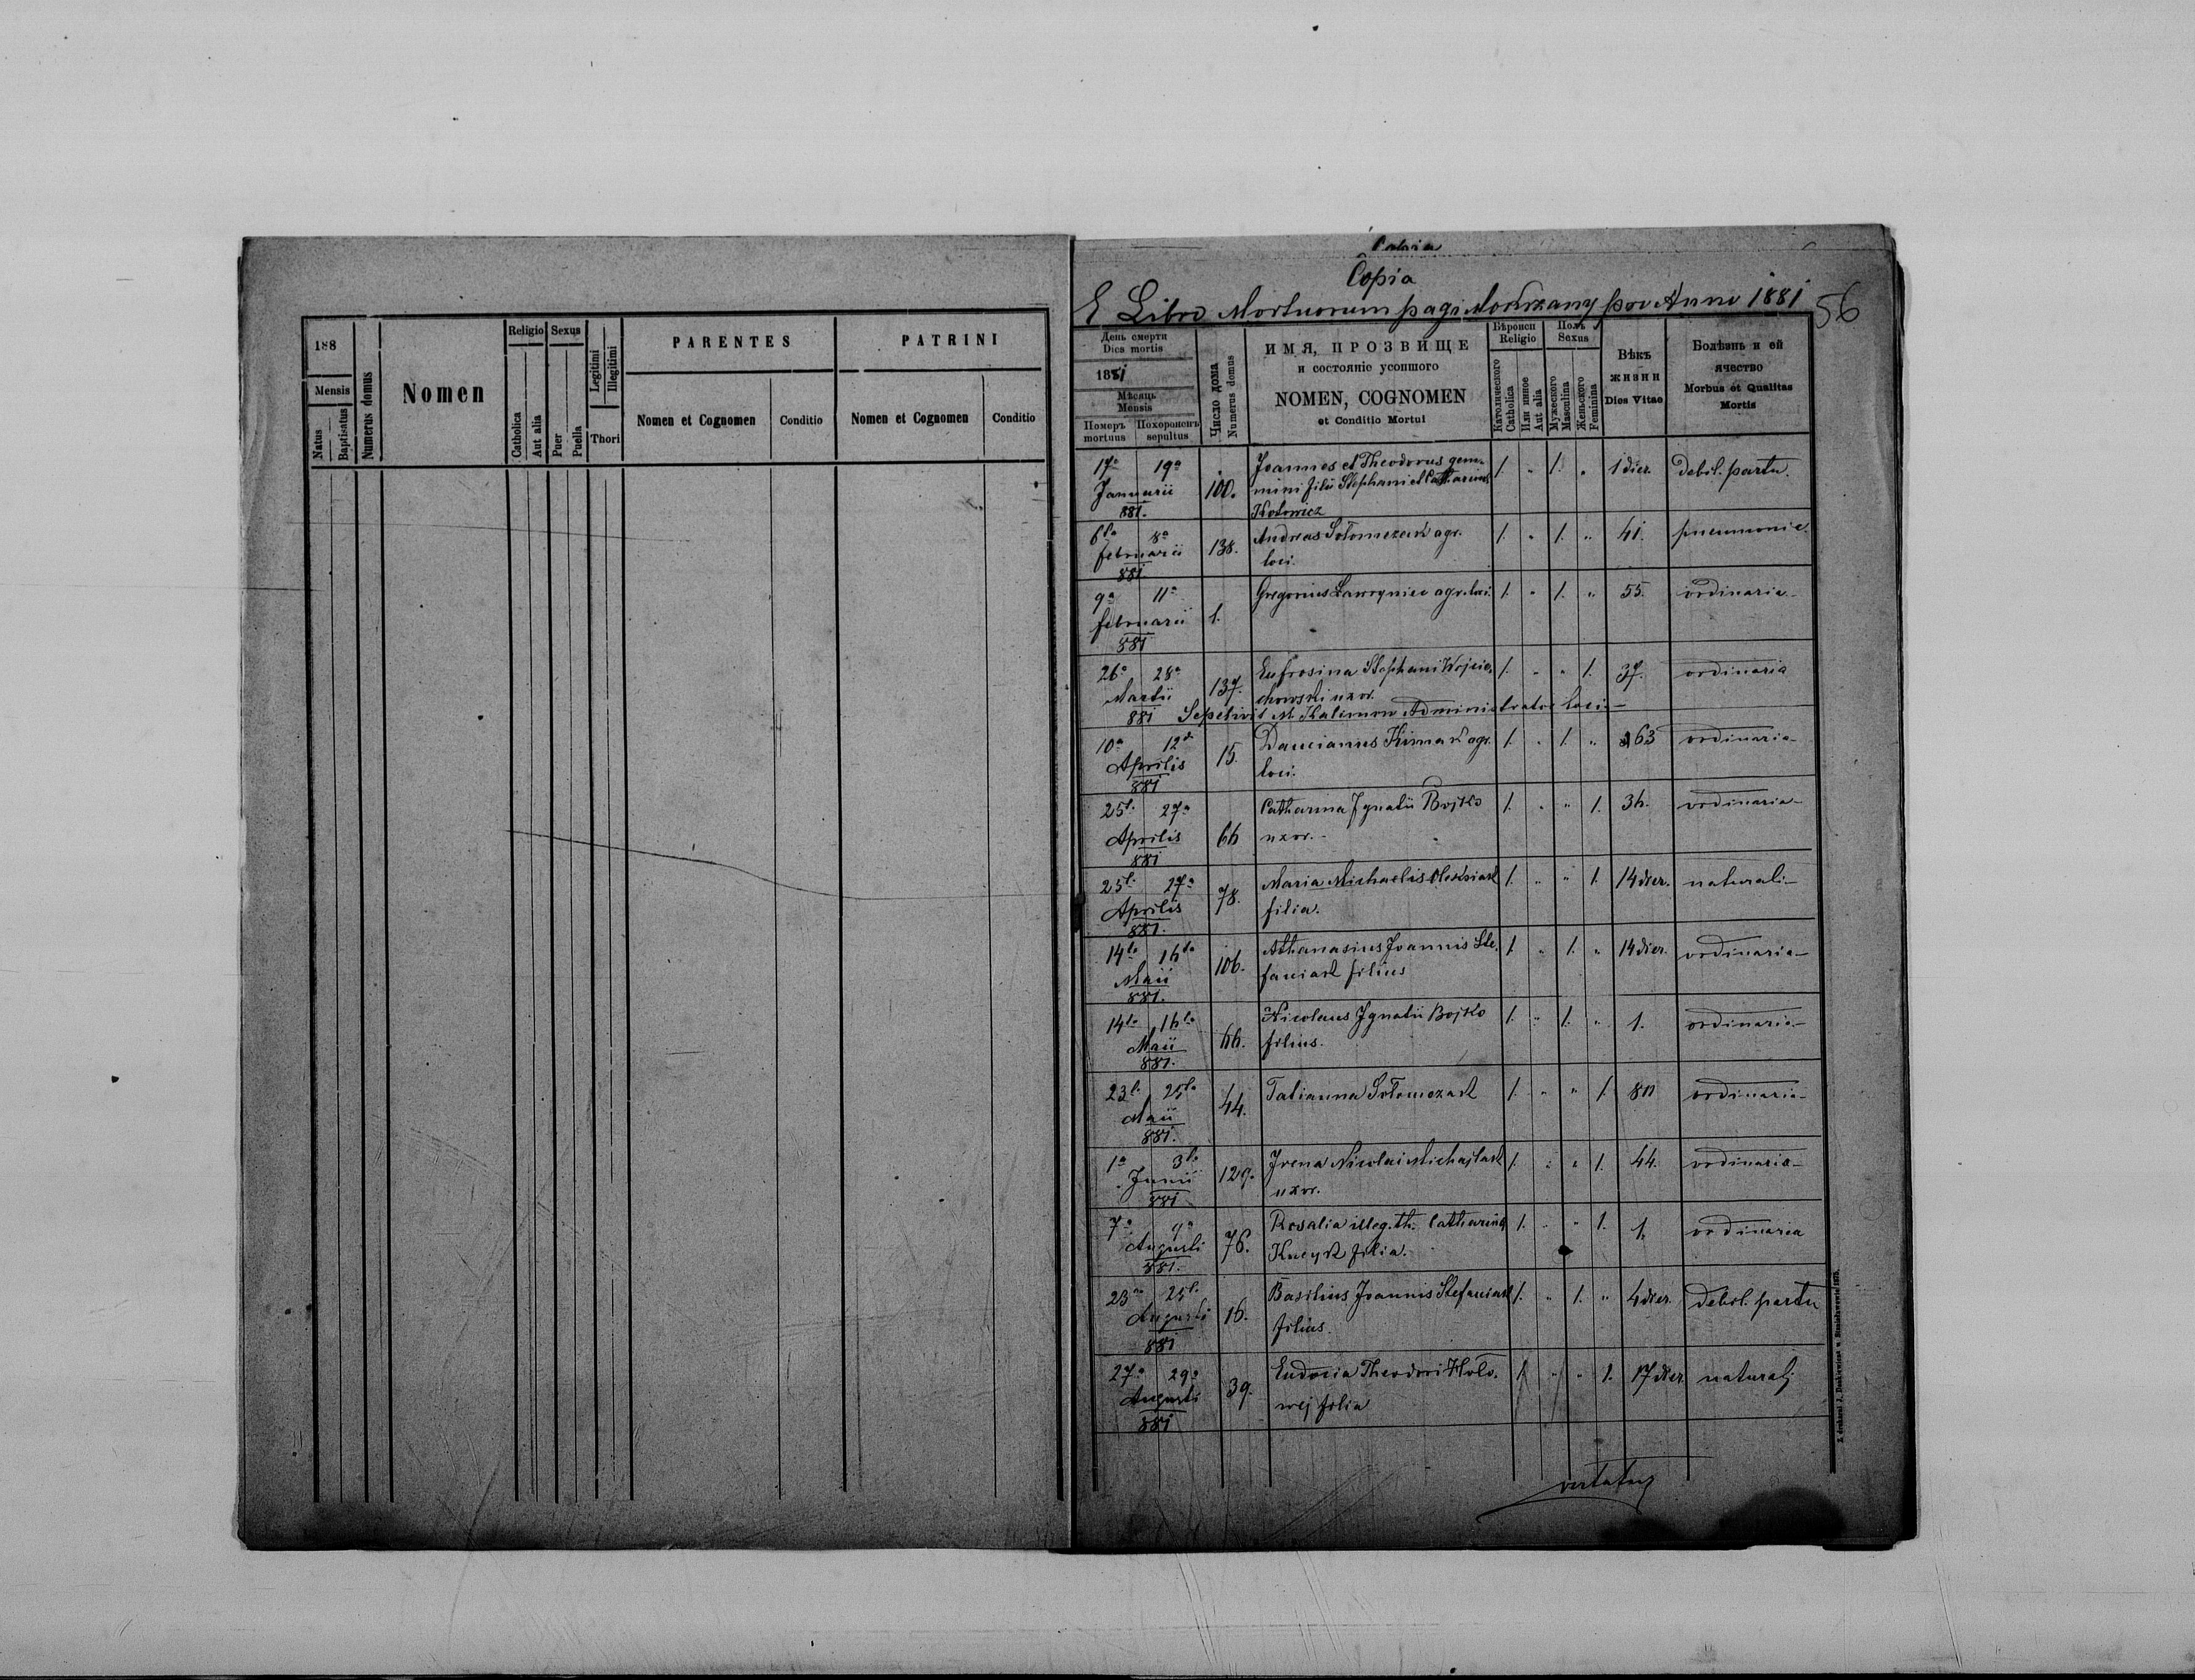 188
Mensis
Natus
Baptisatus
Numerus domus
Nomen
Religio
Catholica
Aut alia
Sexus
Puer
Puella
Legitimi
Illegitimi
Thori
PARENTES
Nomen et Cognomen
Conditio
PATRINI
Nomen et Cognomen
Conditio
Copia
Copia
E Libro Mortuorum pagi pro Anno 1881
56
День смерти
Dies mortis
1881
Мѣсяць
Mensis
Померъ
mortuus
Похороненъ
sepultus
Число дома
Numerus domus
ИМЯ, ПРОЗВИЩЕ
и состояніе усопшого
NOMEN, COGNOMEN
et Conditio Mortui
Religio
Католического
Catholica
Или инное
Aut alia
Полъ
Sexus
Мужеского
Masculina
Женьского
Feminina
Вѣкъ
жизни
Dies Vitae
Болѣзнь и ей
ячество
Morbus et Qualitas
Mortis
17a 19a Januarii 881. 100. Joannes et Theodorus gem-
mini filii Stephani et Catharina
Kotowicz 1. " 1. " 1 dier. debil. partu.
6ta 8a februarii 881 138. Andreas agr.
loci. 1. " 1. " 41. pneumonie.
9a 11a februarii 881 1. Gregorius Ławryniec agr. loci. 1. " 1. " 55. ordinaria
26a 28a Martii 881 137. Eufrosina Stephani Wojcie-
chowski uxor. 1. " " 1. 37. ordinaria
Sepelivit M. Kalimon Administrator loci
10a 12a Aprilis 881 15. agr.
loci. 1. " 1. " 63 ordinaria
25t. 27a Aprilis 881 66 Catharina Ignatii Bojko
uxor. 1. " " 1. 36. ordinaria
25t. 27a Aprilis 881. 78. Maria Michaelis Oleksiak
filia. 1. " " 1. 14 dier. naturali
14ta 16ta Maii 881. 106. Athanasius Joannis Ste-
faniak filius 1. " 1. " 14 dier. ordinaria
14ta 16ta Maii 881. 66. Nicolaus Ignatii Bojko
filius. 1. " 1. " 1. ordinaria
23t. 25ta Maii 881. 44. Tatianna 1. " " 1. 80 ordinaria
1a 3ta Junii 881 129. Irena Nicolai Michajlak
uxor. 1. " " 1. 44. ordinaria
7a 9a Augusti 881. 76. Rosalia illeg. th. Catharina
filia. 1. " " 1. 1. ordinaria
23a 25t. Augusti 881 16. Basilius Joannis Stefaniak
filius. 1. " 1. " 4 dier. debil. partu
27a 29a Augusti 881 39. Eudocia Theodori Holo-
wej filia 1. " " 1. 17 dier naturali
vertatur